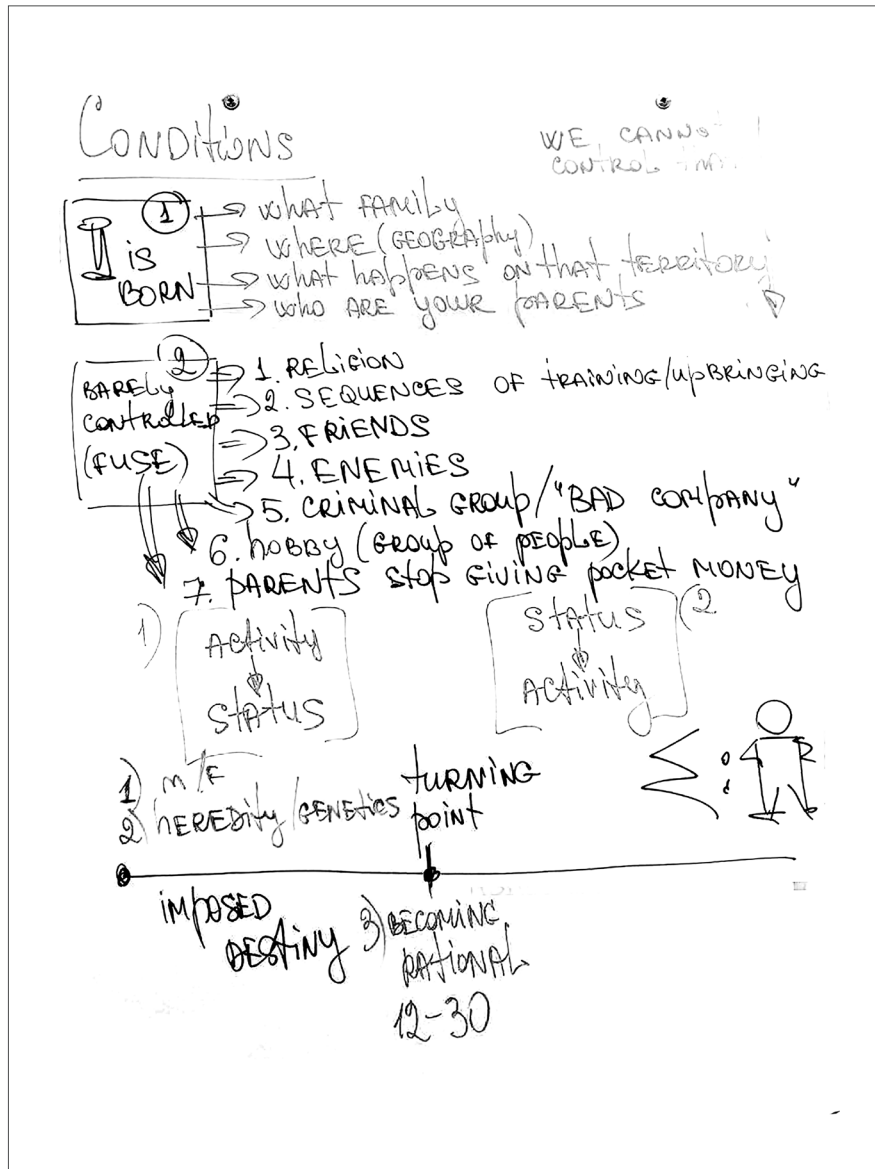 CONDITIONS
WE CANNOT
CONTROL
1
I IS BORN
WHAT FAMILY
WHERE (GEOGRAPHY)
WHAT HAPPENS ON THAT TERRITORY
WHO ARE YOUR PARENTS
2
BARELY
CONTROLLED
(FUSE)
1. RELIGION
2. SEQUENCES OF TRAINING/UPBRINGING
3. FRIENDS
4. ENEMIES
5. CRIMINAL GROUP/"BAD COMPANY"
6. HOBBY (GROUP OF PEOPLE)
7. PARENTS STOP GIVING POCKET MONEY
1)
ACTIVITY
STATUS
2)
STATUS
ACTIVITY
1) M/F
2) HEREDITY/GENETICS
TURNING
POINT
IMPOSED
DESTINY
3) BECOMING
RATIONAL
12-30